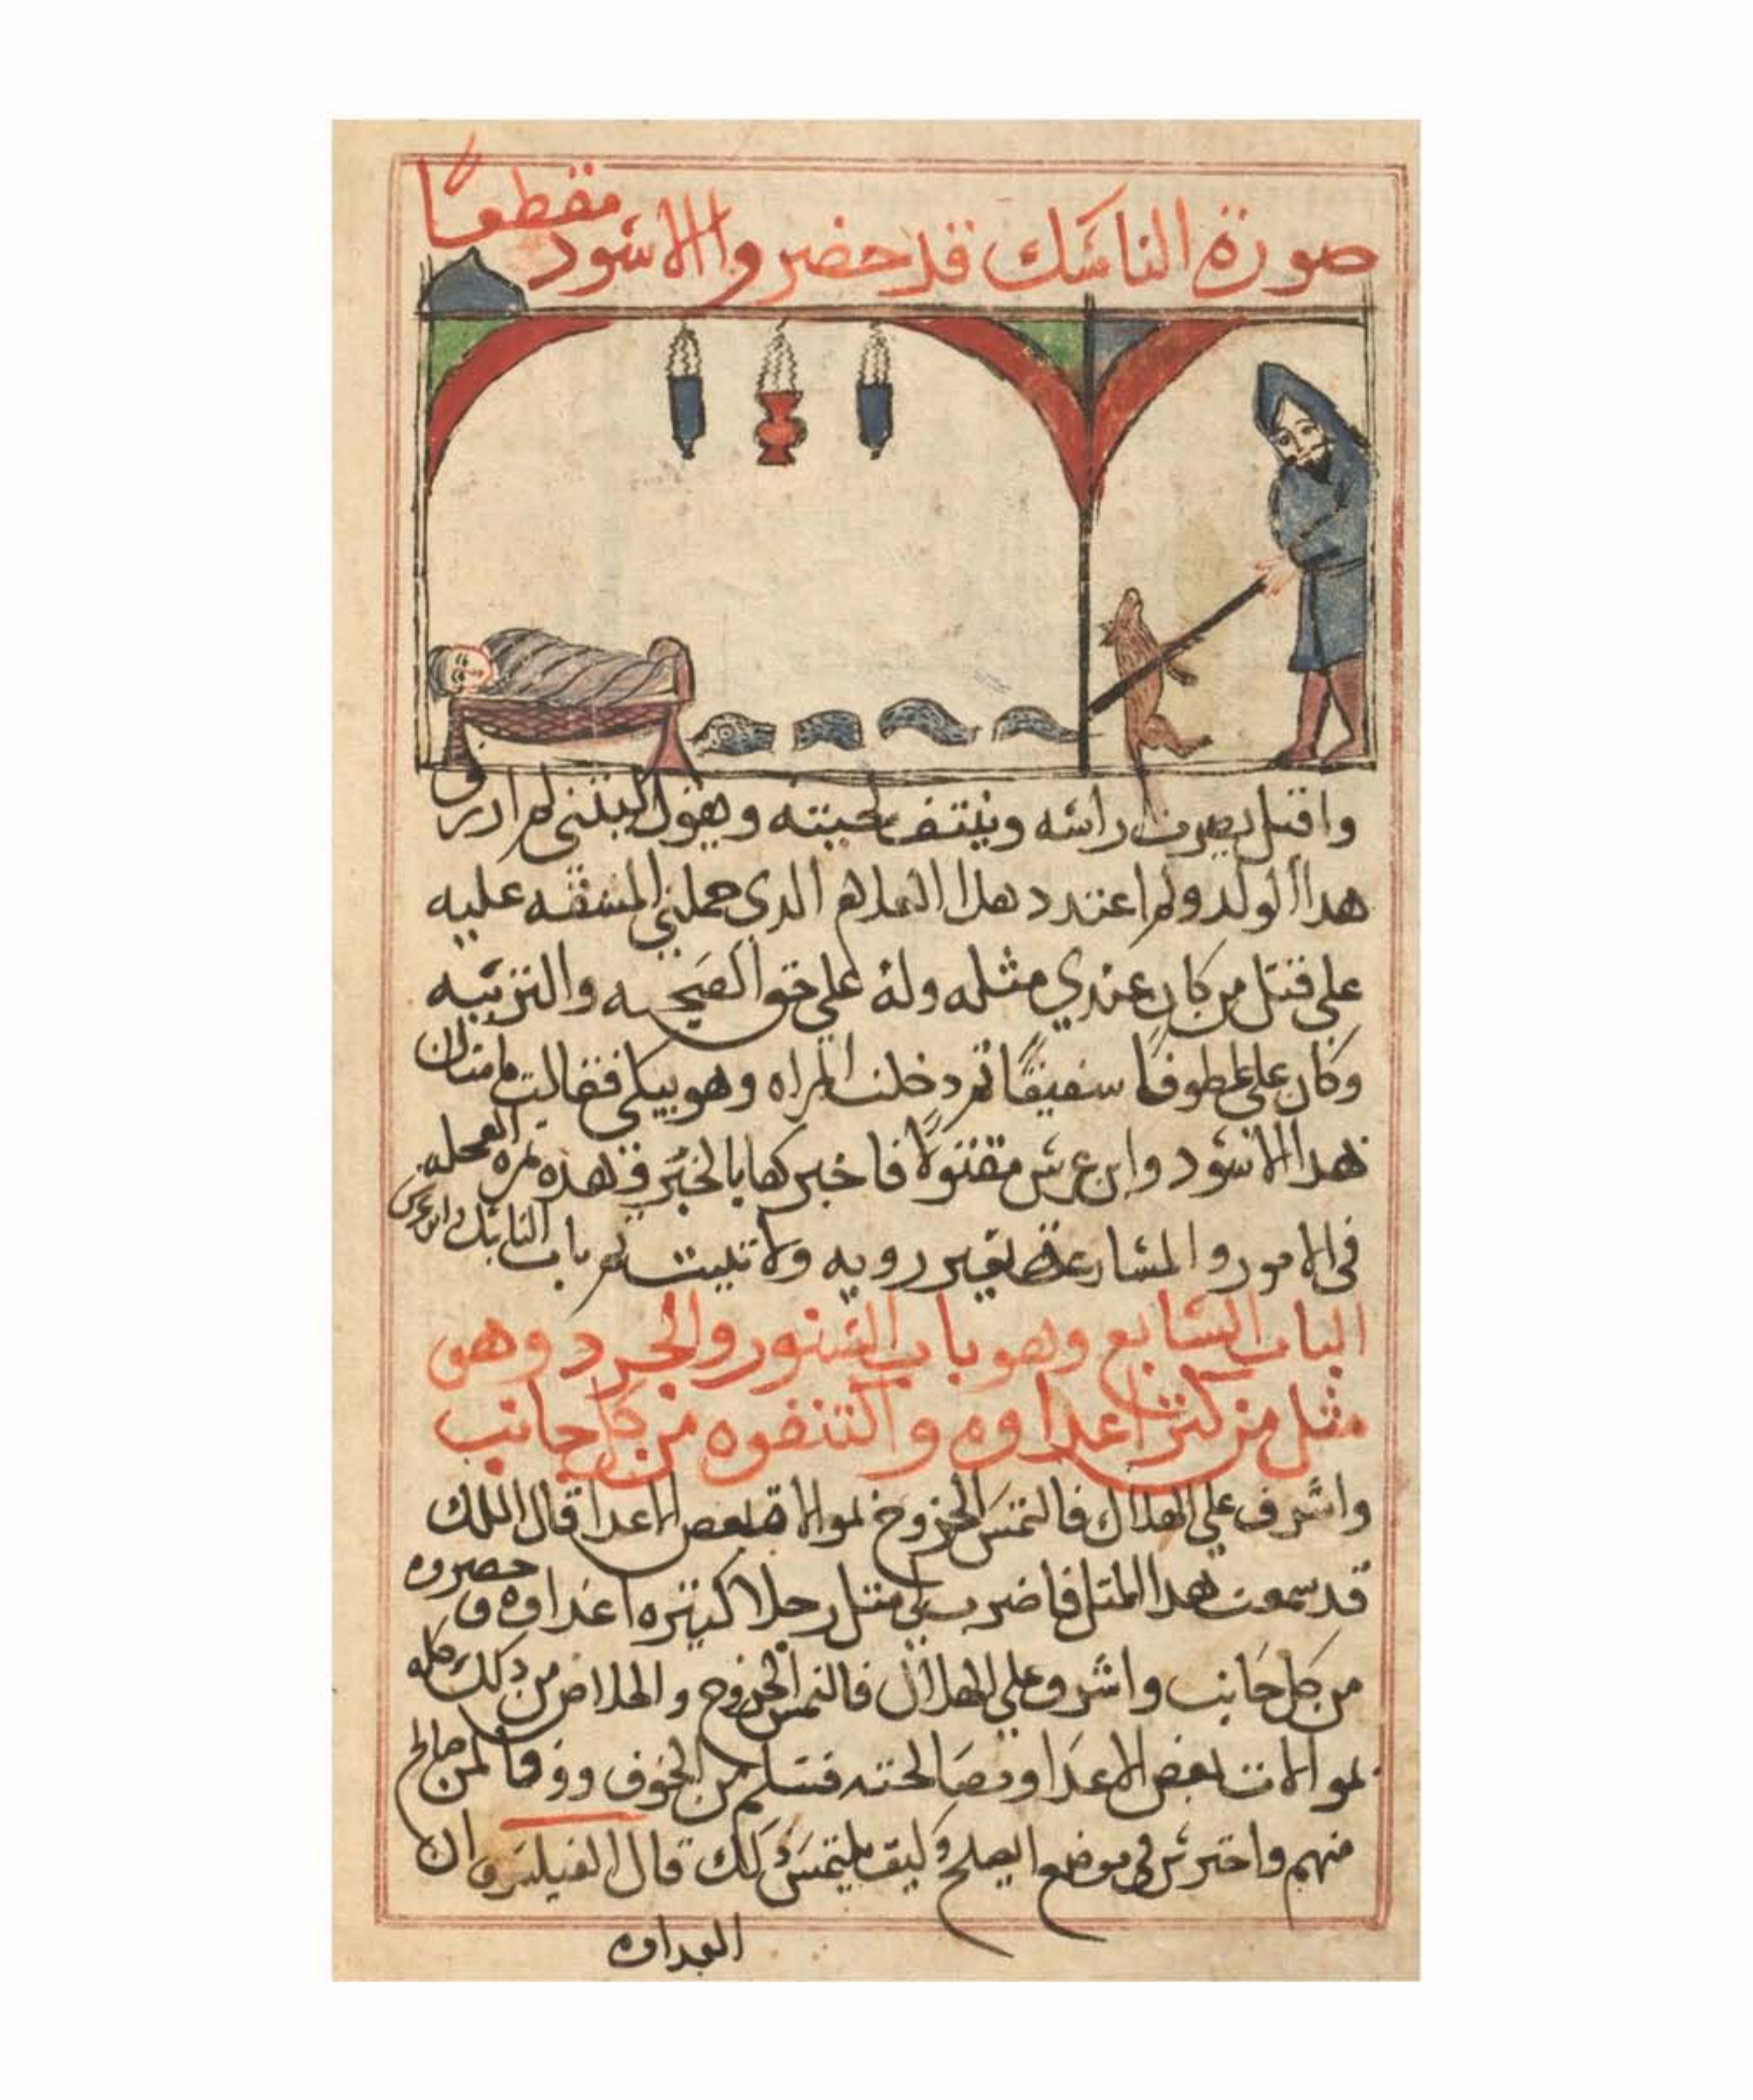 صورة الناسك قد حضر والاسود مقطعًا
واقبل يضرب راسه وينتف لحيته ويقول ليتني لم ارزق
هدا الولد ولم اعتدد هدا الدي حملني المشقه عليه
على قتل من كان عندي مثله وله علي حق الصحبه والتربيه
وكان علي عطوفًا سفيقًا تم دخلت المراه وهو يبكي فقالت ما شان
هدا الاسود وابن عرس مقتولًا فاخبرها بالخبر فهذه تمره العجله
في الامور والمسارعة بغير رويه ولا تتبت تم باب الناسك وابن عرس
الباب السابع وهو باب السنور والجرد وهو
متل من كتر اعداوه واكتنفوه من كل جانب
واشرف على الهلاك فالتمس الخروج بموالاة بعض الاعدا قال الملك
قد سمعت هدا المتل فاضرب لي متل رجلا كتيره اعداوه و حصروه
من كل جانب واشرف على الهلاك فالتمس الخروج والخلاص من دلك كله
بموالات بعض الاعدا ومصالحته فسلم من الخوف ووفا لمن صالح
منهم واحترس في موضع الصلح وكيف يلتمس دلك قال الفيلسوف ان
العداوه